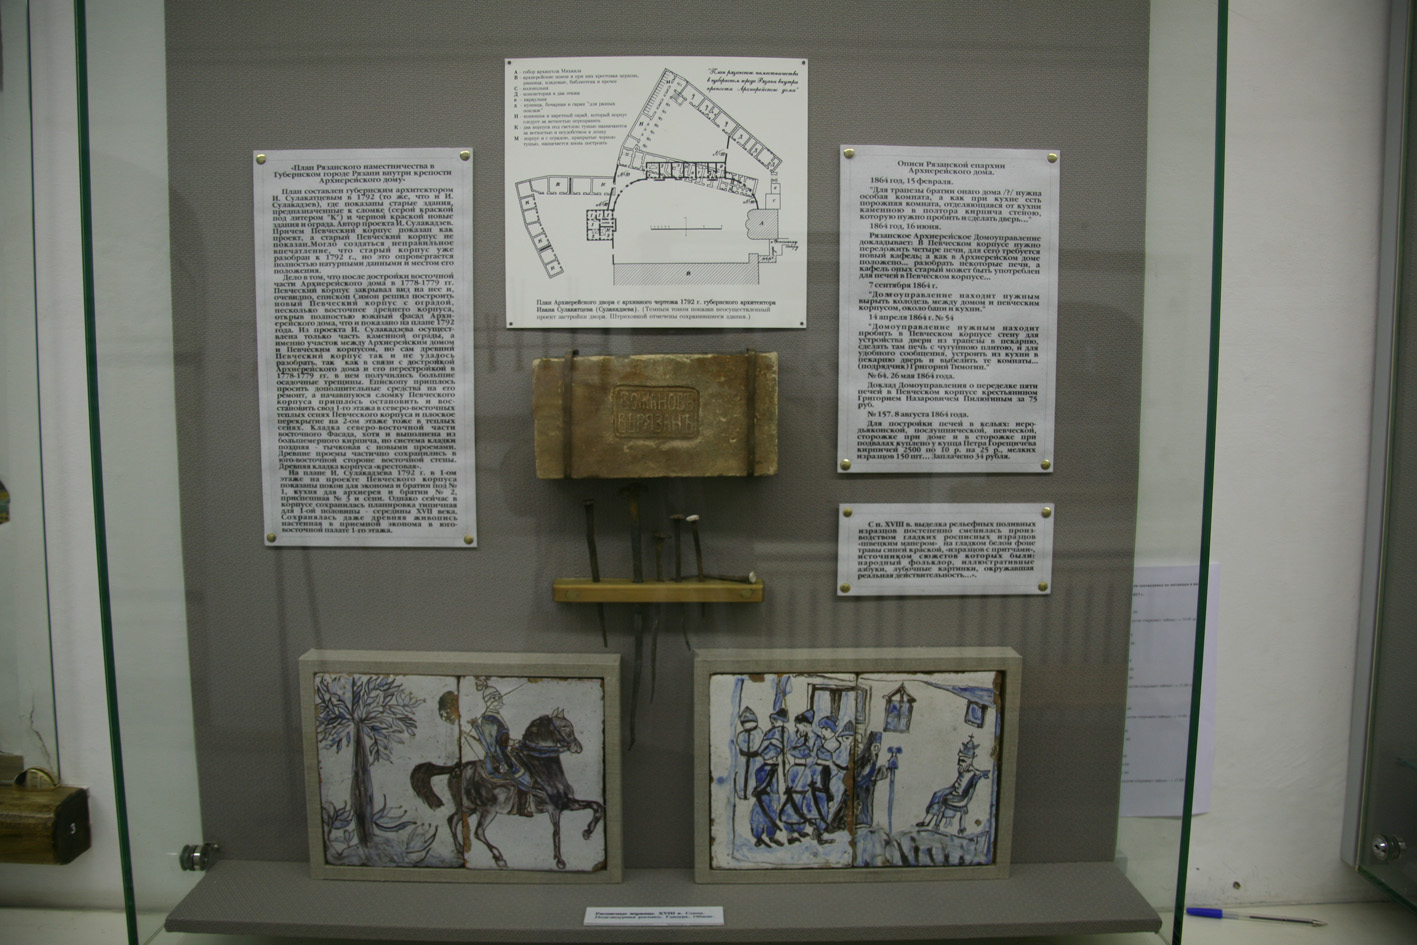 «План Рязанского наместничества в
Губернском городе Рязани внутри крепости
Архиерейского дому»
План составлен губернским архитектором
И. Сулакатцевым в 1792 (то же, что и И.
Сулакадзев), где показаны старые здания,
предназначенные к сломке (серой краской
под литером "К") и черной краской новые
здания и ограда. Автор проекта И. Сулакадзев.
Причем Певческий корпус показан как
проект, а старый Певческий корпус не
показан.Могло создаться неправильное
впечатление, что старый корпус уже
разобран к 1792 г., но это опровергается
полностью натурными данными и местом его
положения.
Дело в том, что после достройки восточной
части Архиерейского дома в 1778-1779 гг.
Певческий корпус закрывал вид на нее и,
очевидно, епископ Симон решил построить
новый Певческий корпус с оградой,
несколько восточнее древнего корпуса,
открыв полностью южный фасад Архи-
ерейского дома, что и показано на плане 1792
года. Из проекта И. Сулакадзева осущест-
влена только часть каменной ограды, а
именно участок между Архиерейским домом
и Певческим корпусом, но сам древний
Певческий корпус так и не удалось
разобрать, так как в связи с достройкой
Архиерейского дома и его перестройкой в
1778-1779 гг. в нем получились большие
осадочные трещины. Епископу пришлось
просить дополнительные средства на его
ремонт, а начавшуюся сломку Певческого
корпуса пришлось остановить и вос-
становить свод 1-го этажа в северо-восточных
теплых сенях Певческого корпуса и плоское
перекрытие на 2-ом этаже тоже в теплых
сенях. Кладка северо-восточной части
восточного Фасада, хотя и выполнена из
большемерного кирпича, но система кладки
поздняя - тычковая с новыми проемами.
Древние проемы частично сохранились в
юго-восточной стороне восточной стены.
Древняя кладка корпуса «крестовая».
На плане И. Сулакадзева 1792 г. в 1-ом
этаже на проекте Певческого корпуса
показаны покои для эконома и братии под №
1, кухня для архиерея и братии № 2,
приспешная № 3 и сени. Однако сейчас в
корпусе сохранилась планировка типичная
для 1-ой половины - середины XVII века.
Сохранялась даже древняя живопись
настенная в приемной эконома в юго-
восточной палате 1-го этажа.
А - собор архангела Михаила
В - архиерейские покои и при них крестовая церковь,
ризница, кладовые, библиотека и прочее
С - колокольня
Д - консистория в два этажа
"План рязанского наместничества
в губернском городе Рязани внутри
крепости Архиерейского дома"
План Архиерейского двора с архивного чертежа 1792 г. губернского архитектора
Ивана Сулакатцева (Сулакадзева). (Темным тоном показан неосуществленный
проект застройки двора. Штриховкой отмечены сохранившиеся здания.)
Описи Рязанской епархии
Архиерейского дома.
1864 год, 15 февраля.
"Для трапезы братии онаго дома /?/ нужна
особая комната, а как при кухне есть
порожняя комната, отделяющаяся от кухни
каменною в полтора кирпича стеною,
которую нужно пробить и сделать дверь..."
1864 год, 16 июня.
Рязанское Архиерейское Домоуправление
докладывает: В Певческом корпусе нужно
переложить четыре печи, для сего требуется
новый кафель; а как в Архиерейском доме
положено... разобрать некоторые печи, а
кафель оных старый может быть употреблен
для печей в Певческом корпусе...
7 сентября 1864 г.
"Домоуправление находит нужным
вырыть колодец между домом и певческим
корпусом, около бани и кухни."
14 апреля 1864 г. № 54
"Домоуправление нужным находит
пробить в Певческом корпусе стену для
устройства двери из трапезы в пекарню,
сделать там печь с чугунною плитою, и для
удобного сообщения, устроить из кухни в
пекарню дверь и выбелить те комнаты...
(подрядчик) Григорий Тимогин."
№ 64, 26 мая 1864 года.
Доклад Домоуправления о переделке пяти
печей в Певческом корпусе крестьянином
Григорием Назаровичем Пилюгиным за 75
руб.
№ 157. 8 августа 1864 года.
Для постройки печей в кельях: иеро-
дьяконской, послушнической, певческой,
сторожке при доме и в сторожке при
подвалах куплено у купца Петра Горещичева
кирпичей 2500 по 10 р. на 25 р., мелких
изразцов 150 шт... Заплачено 34 рубля.
С н. XVIII в. выделка рельефных поливных
изразцов постепенно сменилась произ-
водством гладких росписных изразцов
«швецким манером» на гладком белом фоне
травы синей краской, «изразцов с притчами»,
источником сюжетов которых были:
народный фольклор, иллюстративные
азбуки, лубочные картинки, окружавшая
реальная действительность...».
В РЯЗАНЪ